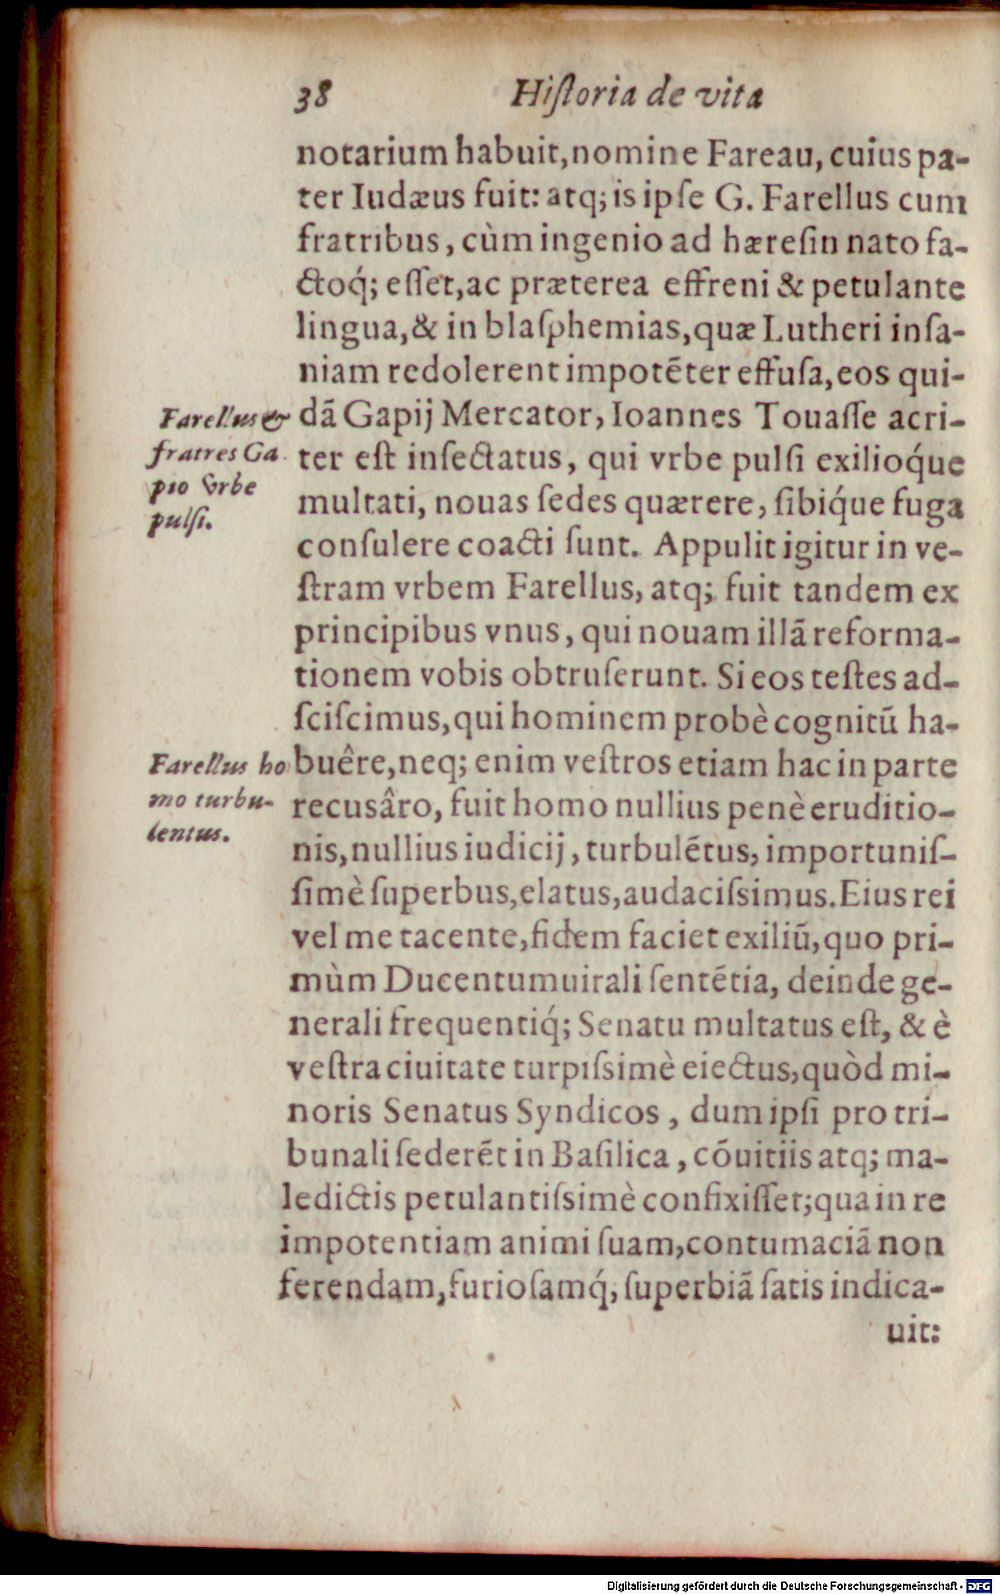 38 Hiſtoria de vita
notarium habuit, nomine Fareau, cuius pa-
ter Iudæus fuit: atq; is ipſe G. Farellus cum
fratribus, cùm ingenio ad hæreſin nato fa-
ctoq́; eſſet, ac præterea effreni & petulante
lingua, & in blaſphemias, quæ Lutheri inſa-
niam redolerent impotẽter effuſa, eos qui-
dã Gapij Mercator, Ioannes Touaſſe acri-
ter eſt inſectatus, qui vrbe pulſi exilioq́ue
multati, nouas ſedes quærere, ſibiq́ue fuga
conſulere coacti ſunt. Appulit igitur in ve-
ſtram vrbem Farellus, atq; fuit tandem ex
principibus vnus, qui nouam illã reforma-
tionem vobis obtruſerunt. Si eos teſtes ad-
ſciſcimus, qui hominem probè cognitũ ha-
buêre, neq; enim veſtros etiam hac in parte
recusâro, fuit homo nullius penè eruditio-
nis, nullius iudicij, turbulẽtus, importuniſ-
ſimè ſuperbus, elatus, audaciſsimus. Eius rei
vel me tacente, fidem faciet exiliũ, quo pri-
mùm Ducentumuirali ſentẽtia, deinde ge-
nerali frequentiq́; Senatu multatus eſt, & è
veſtra ciuitate turpiſsimè eiectus, quòd mi-
noris Senatus Syndicos, dum ipſi pro tri-
bunali ſederẽt in Baſilica, cõuitiis atq; ma-
ledictis petulantiſsimè confixiſſet; qua in re
impotentiam animi ſuam, contumaciã non
ferendam, furioſamq́; ſuperbiã ſatis indica-
uit:
Farellus &
fratres Ga
pio vrbe
pulſi.
Farellus ho
mo turbu-
lentus.
Digitalisierung gefördert durch die Deutsche Forschungsgemeinschaft - DFG